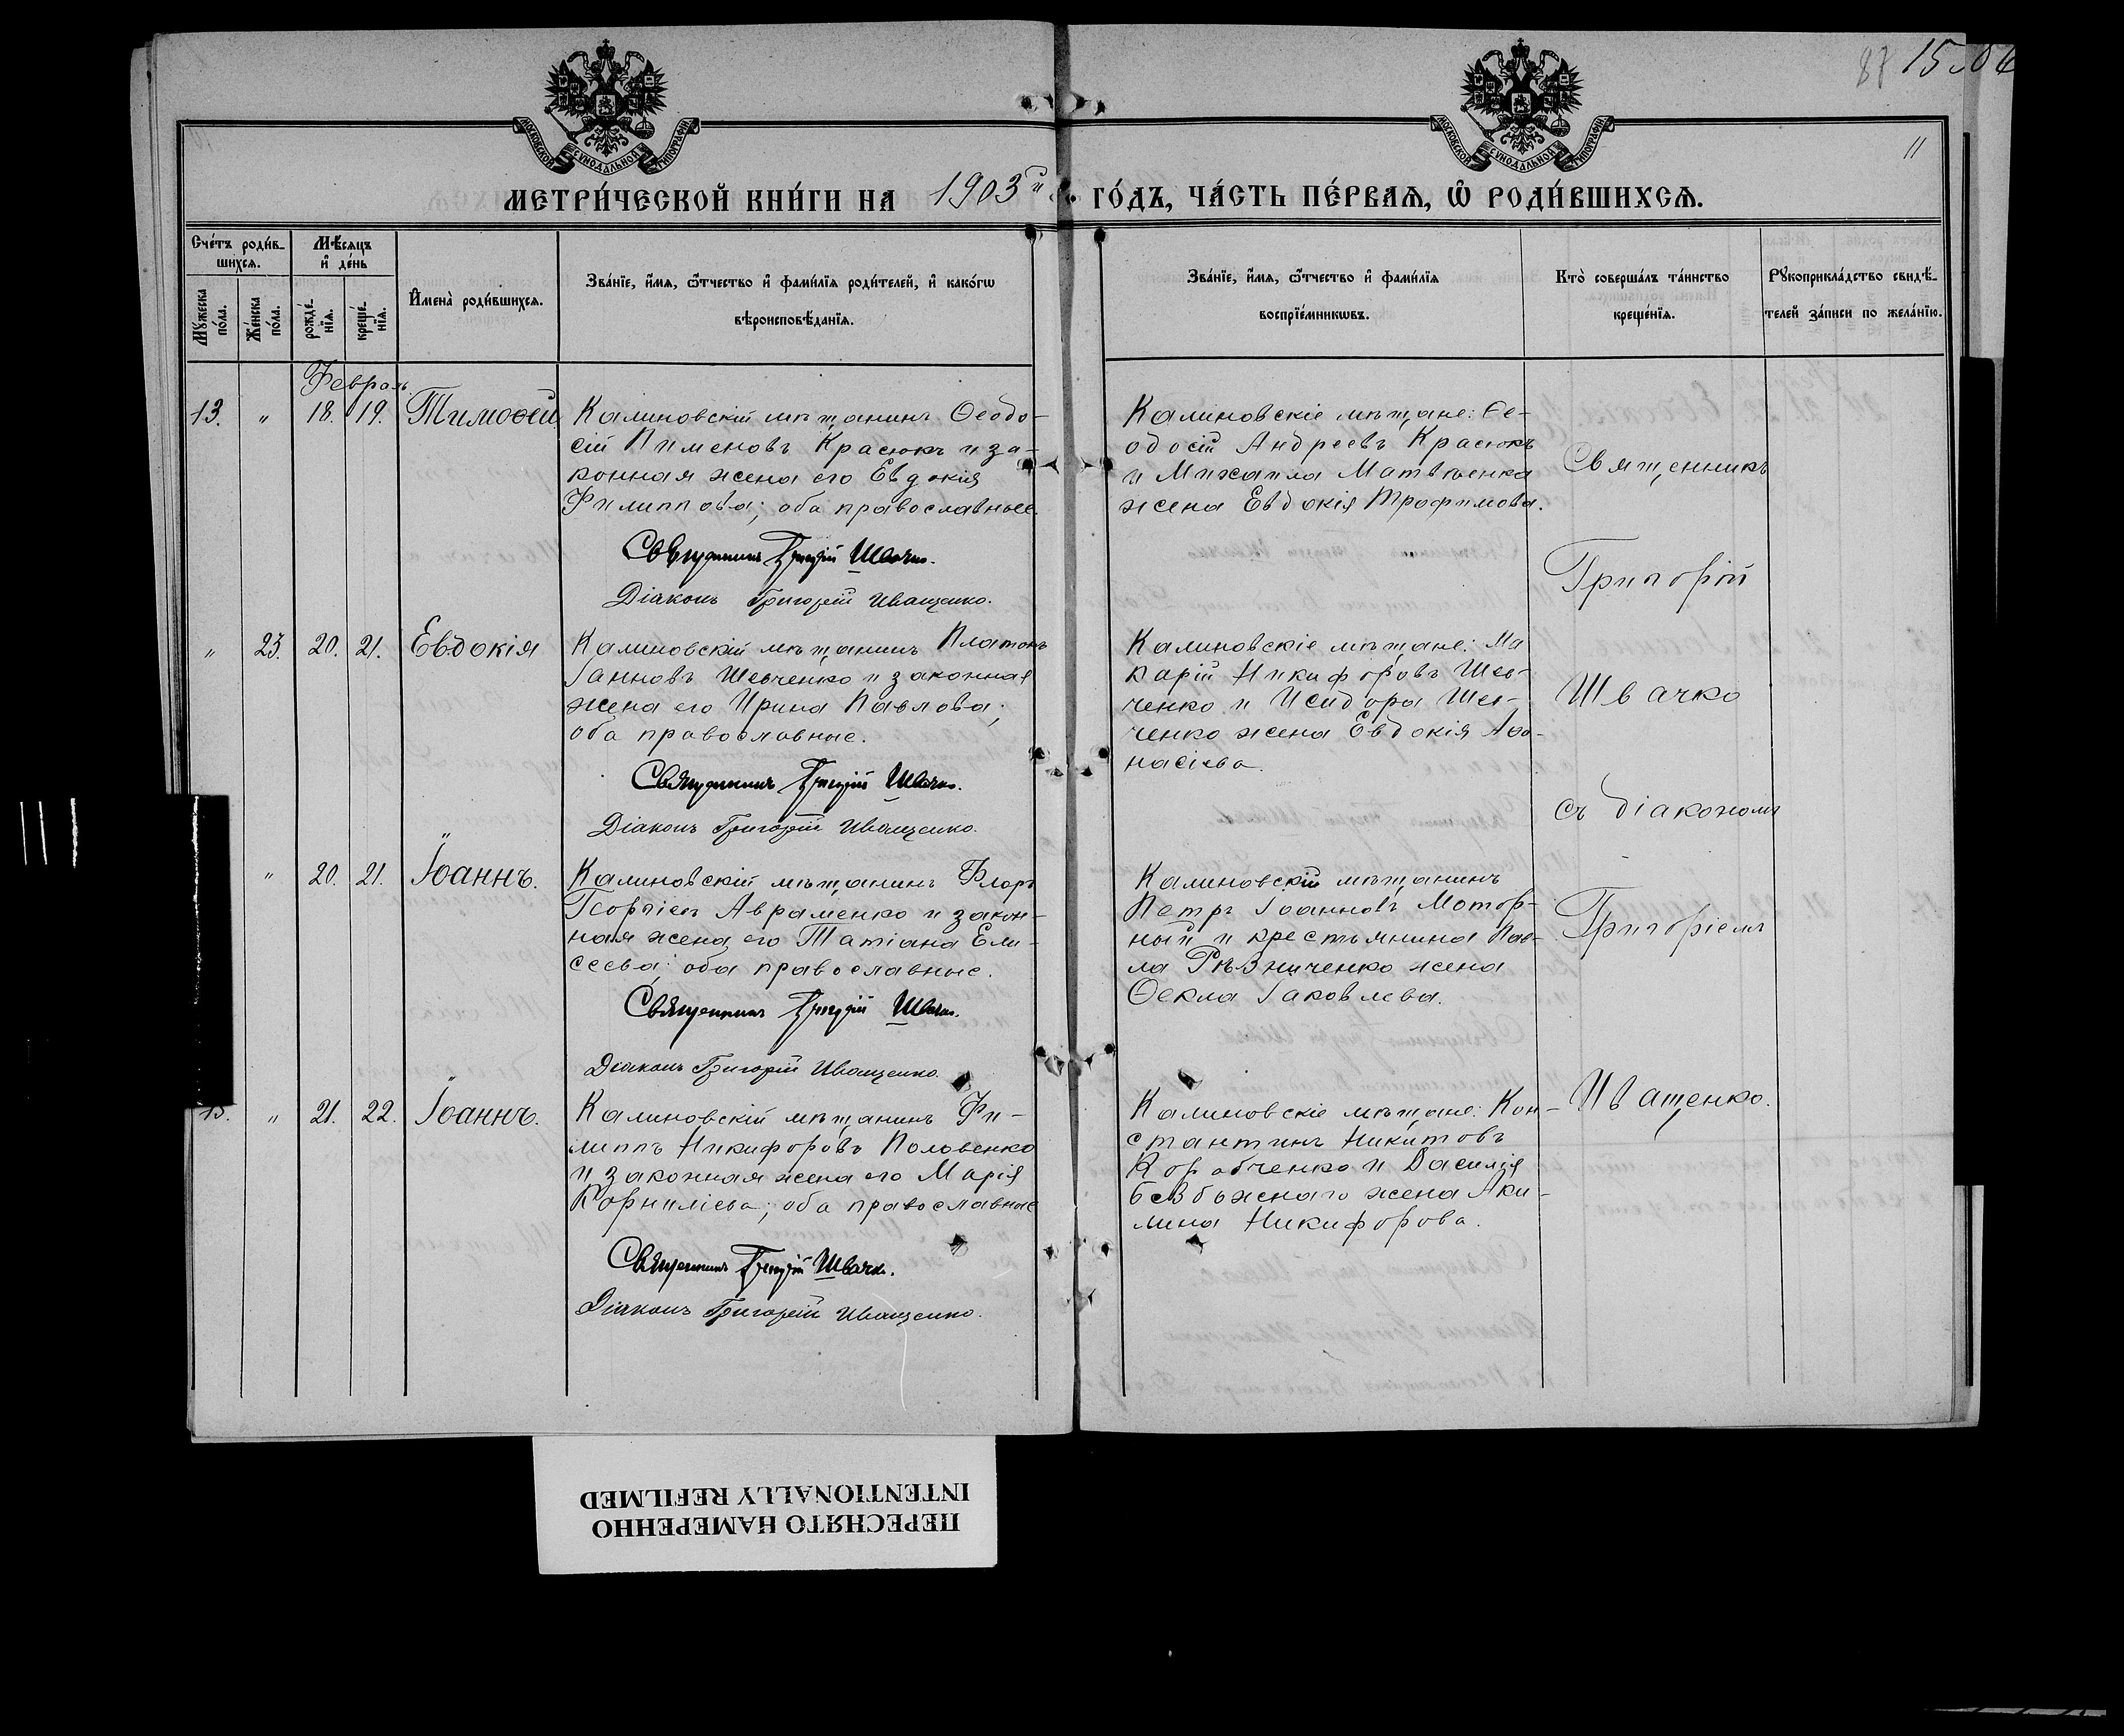 87 15.06
11
МОСКОВСКОЙ СѴНОДАЛЬНОЙ ТИПОГРАФІИ
МОСКОВСКОЙ СѴНОДАЛЬНОЙ ТИПОГРАФІИ
МЕТРИ́ЧЕСКОЙ КНИ́ГИ НА 1903й ГО́ДЪ, ЧА́СТЬ ПЕ́РВАѦ, Ѽ РОДИ́ВШИХСѦ.
Сче́тъ роди́в-
шихсѧ.
Мꙋ́жеска по́ла.
Же́нска по́ла.
Мѣ́сѧцъ
и҆ де́нь
рожде́-
нїѧ.
креще́-
нїѧ.
И҆мена̀ роди́вшихсѧ.
Зва́нїе, и҆́мѧ, ѻ҆́тчество и҆ фами́лїѧ роди́телей, и҆ како́гѡ
вѣроисповѣ́данїѧ.
Зва́нїе, и҆́мѧ, ѻ҆́тчество и҆ фами́лїѧ
воспрїе́мникѡвъ.
Кто̀ соверша́лъ та́инство
креще́нїѧ.
Рꙋкоприкла́дство свидѣ́-
телей за́писи по жела́нїю.
Февраль
13. " 18. 19. Тимоѳей
Калиновскій мѣщанинъ Ѳеодо-
сій Пименовъ Красюкъ и за-
конная жена его Евдокія
Филиппова; оба православные.
Священникъ Григорій Швачко.
Діаконъ Григорій Иващенко.
Калиновскіе мѣщане: Ѳе-
одосій Андреевъ Красюкъ
и Михаила Матвѣенка
жена Евдокія Трофимова.
" 23. 20. 21. Евдокія
Калиновскій мѣщанинъ Платонъ
Іанновъ Шевченко и законная
жена его Ирина Павлова;
оба православные.
Священникъ Григорій Швачко.
Діаконъ Григорій Иващенко.
Калиновскіе мѣщане: Ма
карій Никифоровъ Шев-
ченко и Исидора Шев-
ченко жена Евдокія Аѳа-
насіева.
" 20. 21. Іоаннъ.
Калиновскій мѣщанинъ Флоръ
Георгіевъ Авраменко и закон-
ная жена его Татіана Ели-
сеева; оба православные.
Священникъ Григорій Швачко.
Діаконъ Григорій Иващенко.
Калиновскій мѣщанинъ
Петръ Іоанновъ Мотор-
ный и крестьянина Пав-
ла Рѣзниченко жена
Ѳекла Іаковлева.
15. " 21. 22. Іоаннъ.
Калиновскій мѣщанинъ Фи-
липпъ Никифоровъ Половенко
и законная жена его Марія
Корниліева; оба православные
Священникъ Григорій Швачко.
Діаконъ Григорій Иващенко.
Калиновскіе мѣщане: Кон-
стантинъ Никитовъ
Коробченко и Василія
Безбожнаго жена Аки-
лина Никифорова.
Священникъ
Григорій
Швачко
съ діакономъ
Григоріемъ
Иващенко.
ПЕРЕСНЯТО НАМЕРЕННО
INTENTIONALLY REFILMED